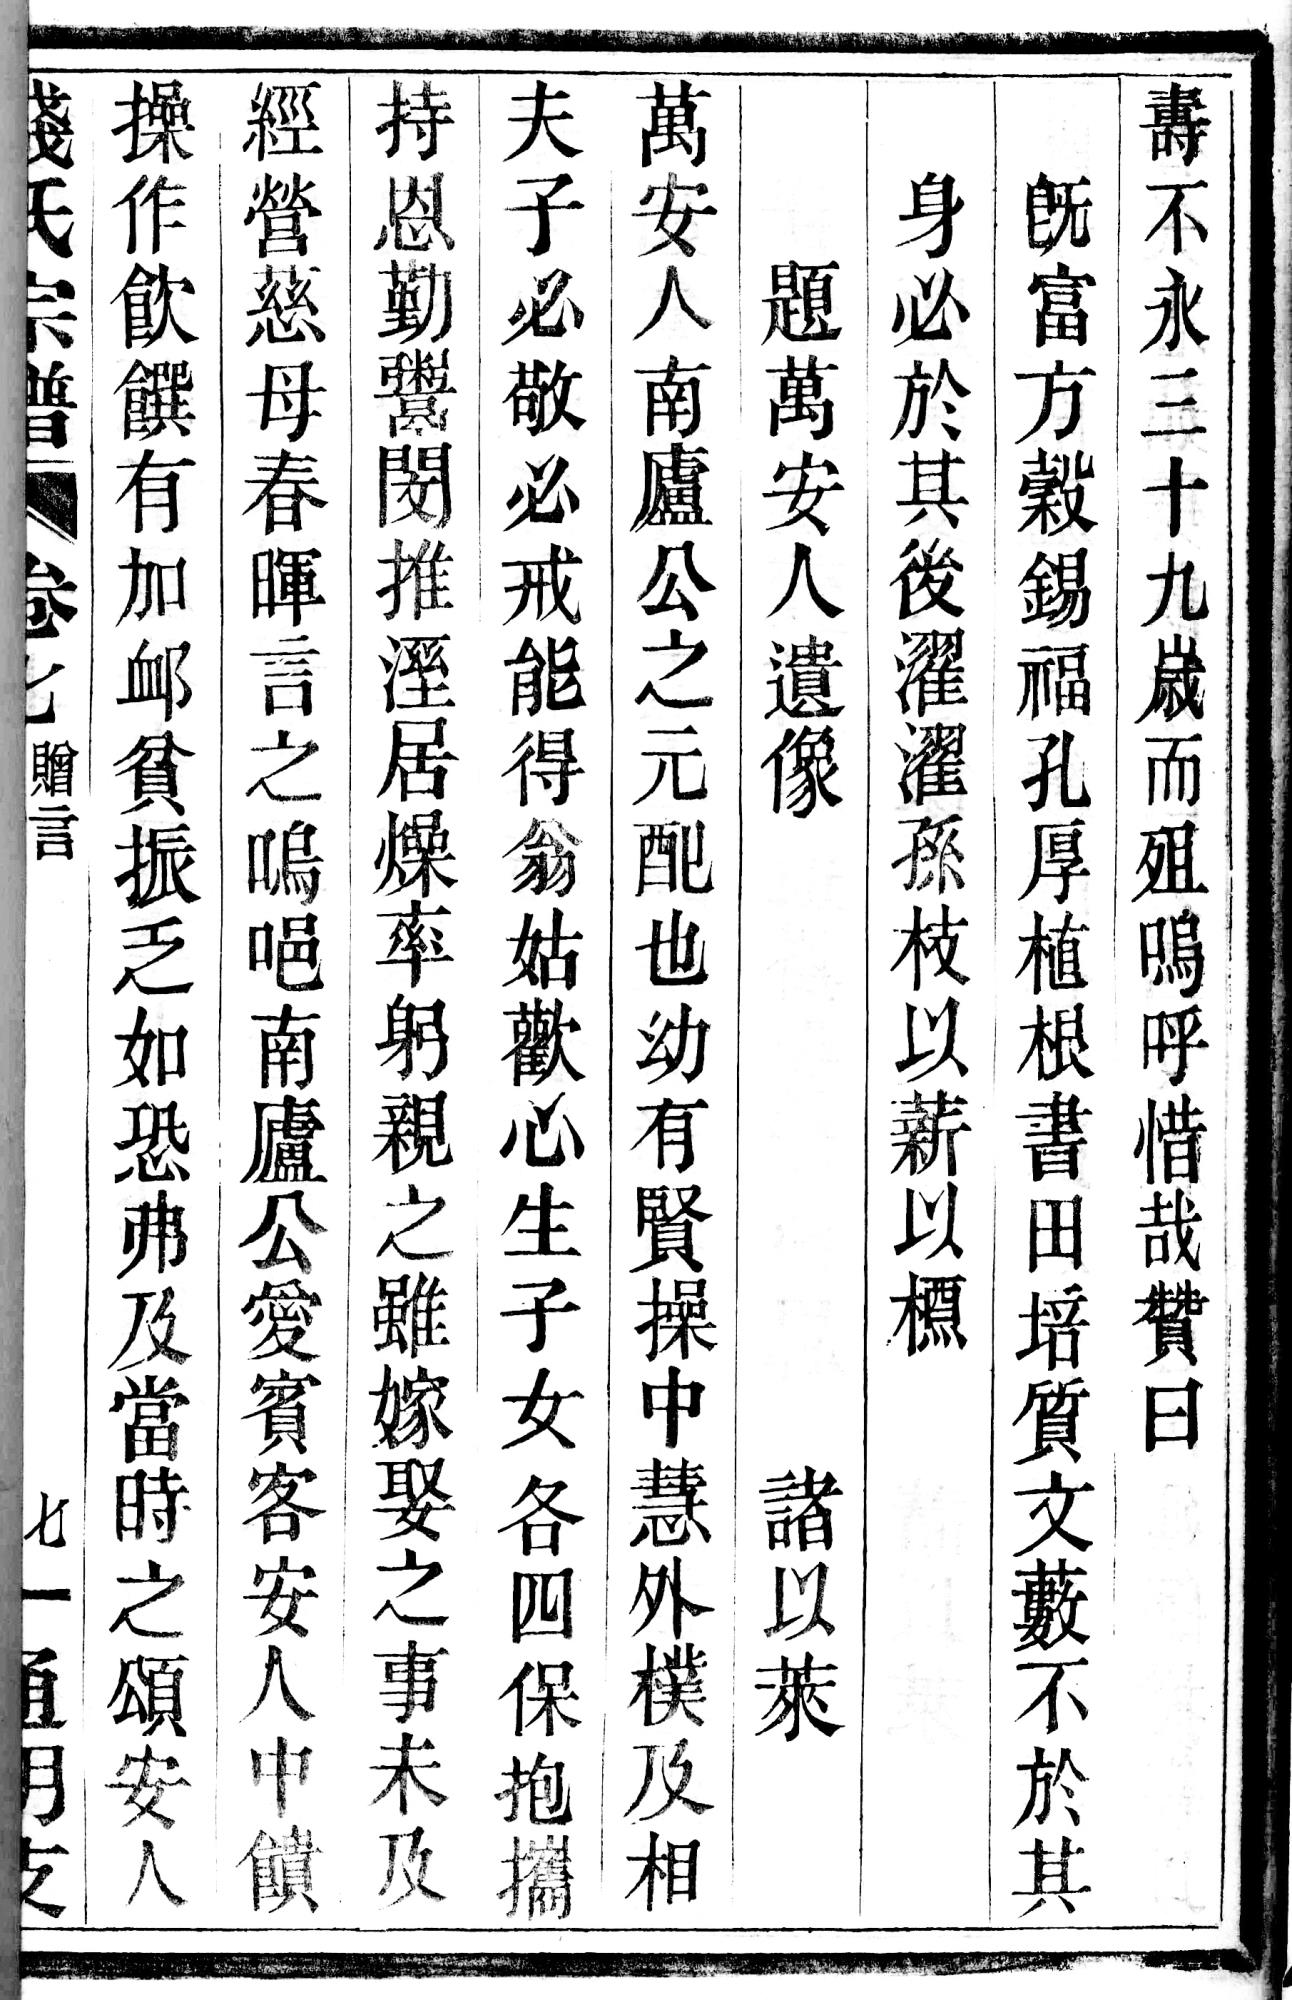 壽不永三十九歲而殂嗚呼惜哉贊曰
既富方穀錫福孔厚植根書田培質文藪不於其
身必於其後濯濯孫枝以薪以槱
題萬安人遺像 諸以萊
萬安人南廬公之元配也幼有賢操中慧外樸及相
夫子必敬必戒能得翁姑歡心生子女各四保抱攜
持恩勤鬻閔推溼居燥率躬親之雖嫁娶之事未及
經營慈母春暉言之嗚唈南廬公愛賓客安人中饋
操作飲饌有加卹貧振乏如恐弗及當時之頌安人
錢氏宗譜 卷七 贈言 七 一 通明支